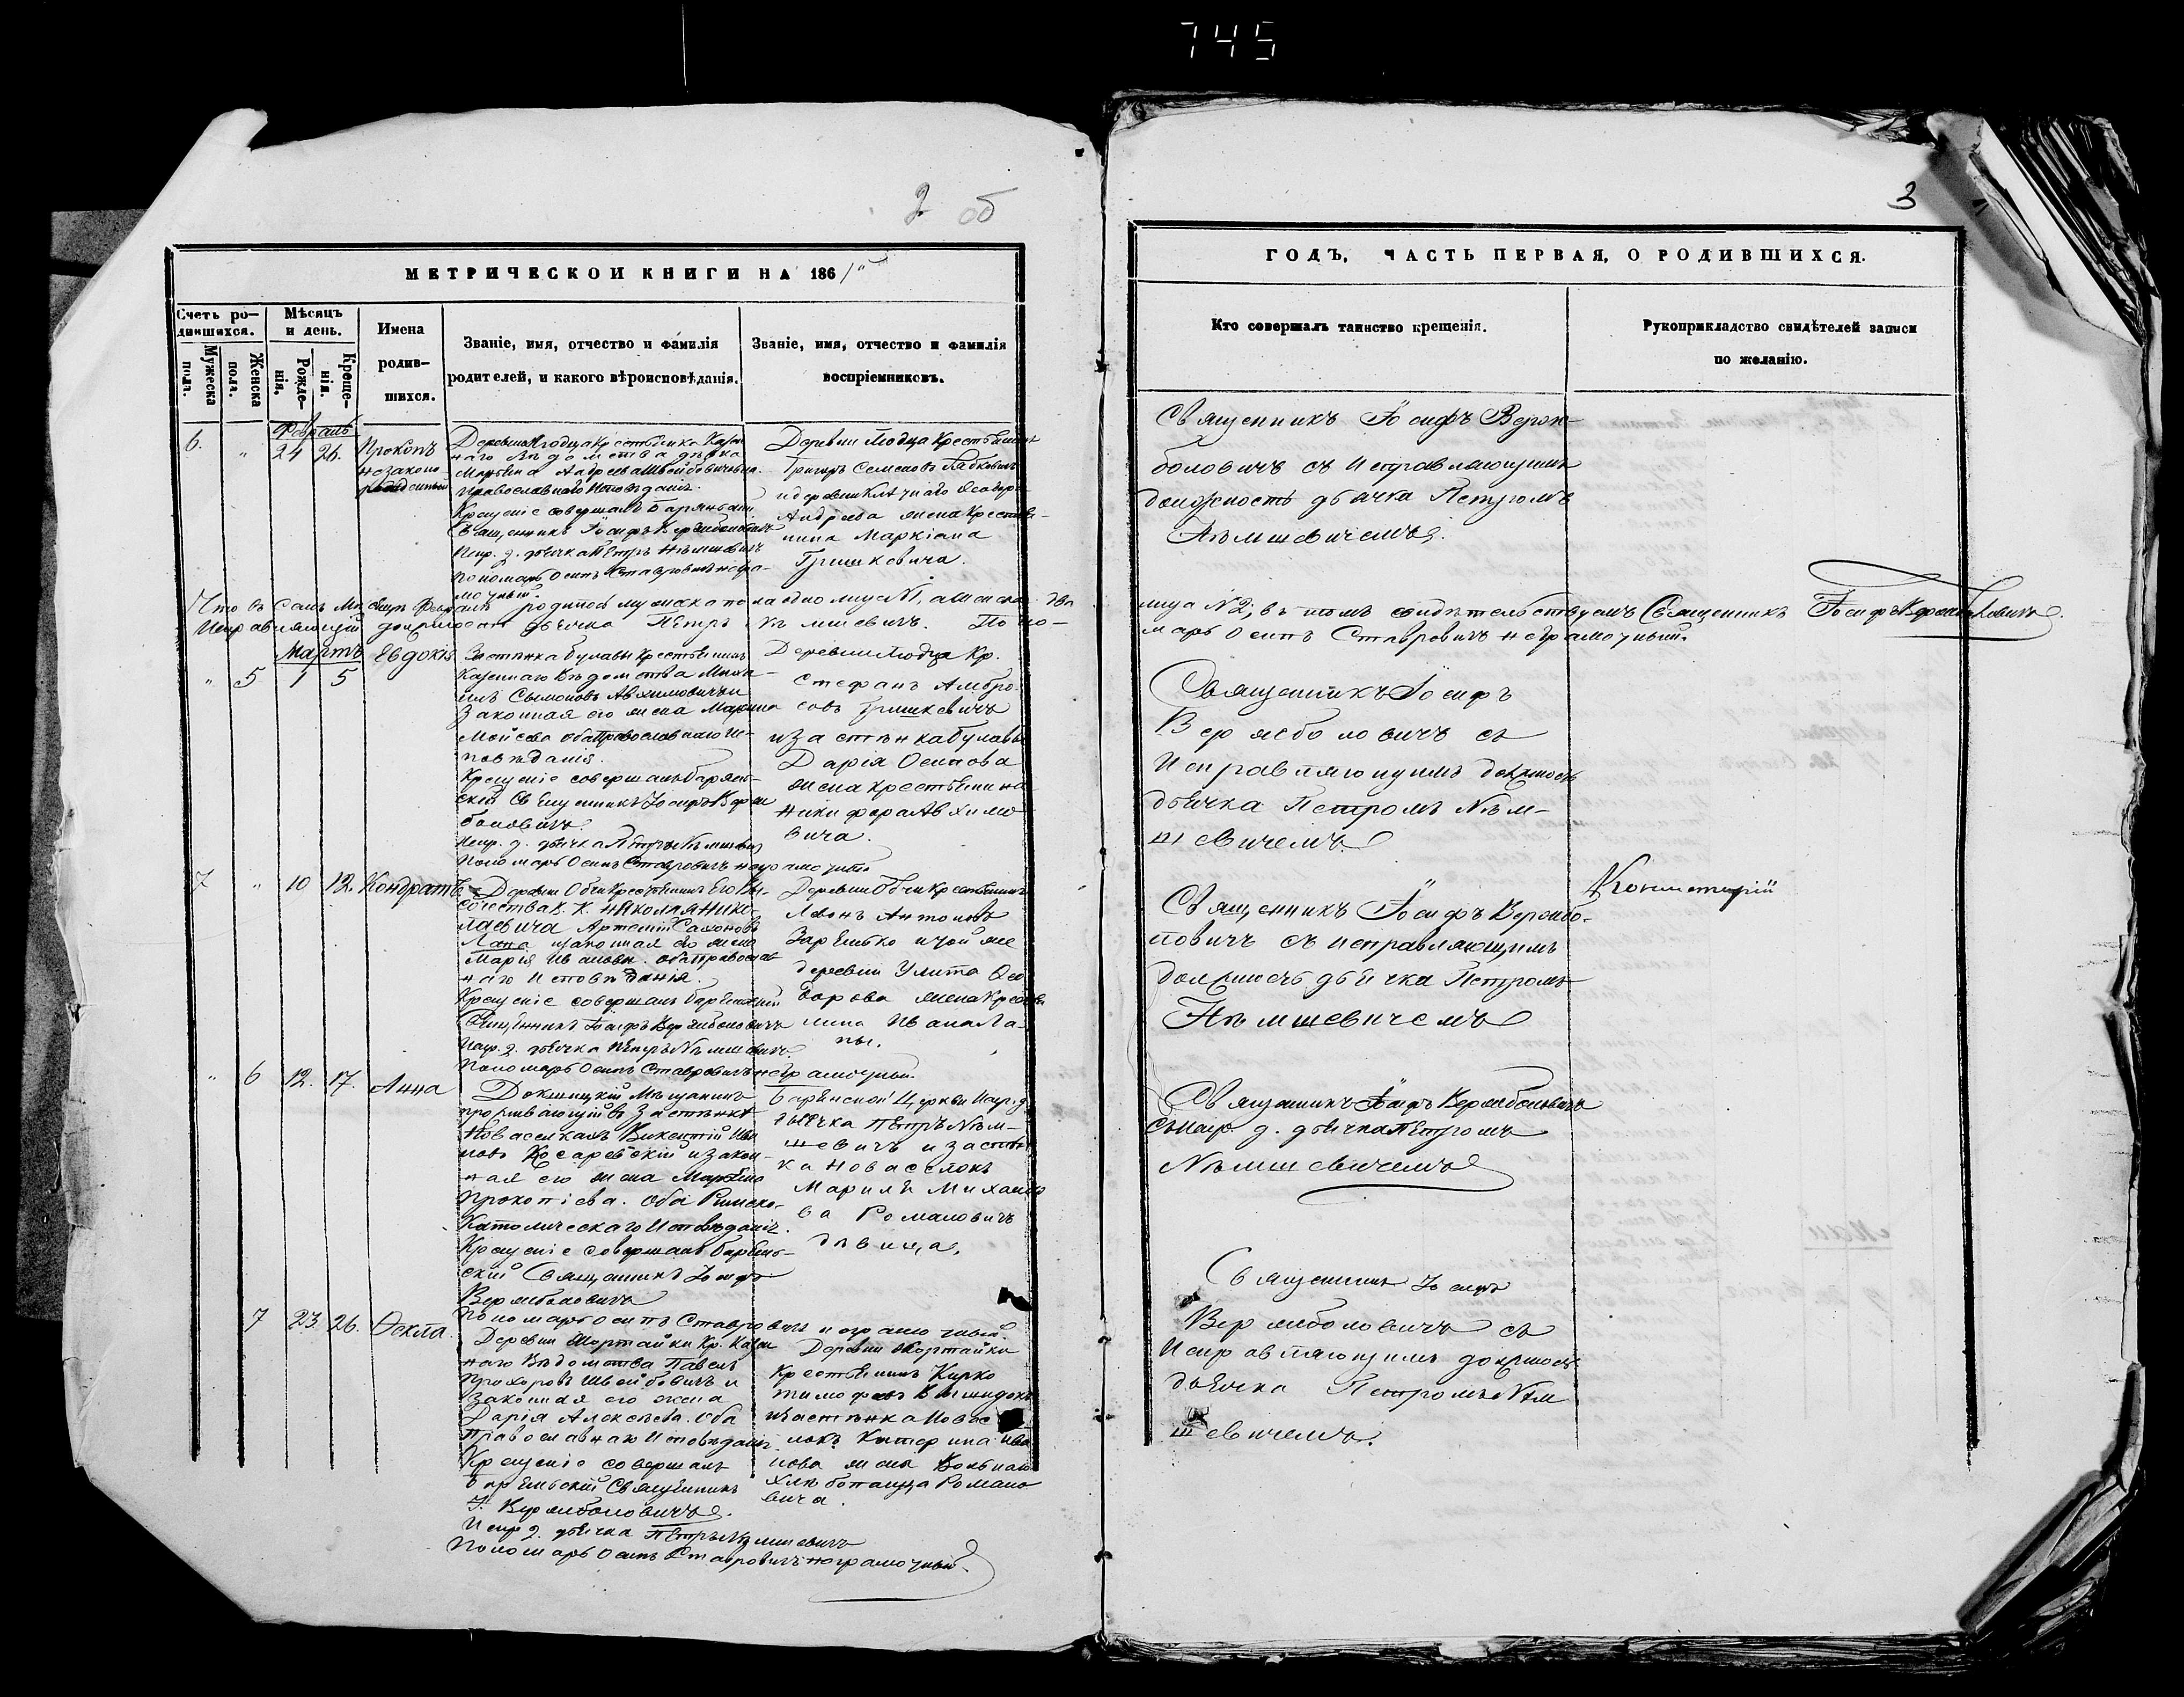 745
2 об
МЕТРИЧЕСКОЙ КНИГИ НА 1861
Счетъ ро-
дившихся.
Мужеска
пола.
Женска
пола.
Мѣсяцъ
и день.
Рожде-
нія.
Креще-
нія.
Имена
родив-
шихся.
Званіе, имя, отчество и фамилія
родителей, и какого вѣроисповѣданія.
Званіе, имя, отчество и фамилія
воспріемниковъ.
Февраль
6. " 24 26. Прокопъ
незаконо
рожденный
наго Вѣдомства дѣвка
Православнаго Исповѣданія.
Крещеніе совершалъ
Священникъ Іосифъ Вержболовичъ
Испр. д. дьячка Петръ Нѣмшевичъ
Пономарь Осипъ Ставровичъ негра-
мотный.
Григоръ Семеновъ
Андреева жена крестья-
нина Маркіана
Гришкевича.
Что въ семъ Мѣсяцѣ Февралѣ родилось мужска пола одно лицо №1, а женска два
Исправляющій должность дьячка Петръ Нѣмшевичъ. Поно-
Мартъ
" 5 1 5 Евдокія
Застѣнка Булавы Крестьянинъ
Казеннаго Вѣдомства Миха-
илъ Сымоновъ Авхимовичъ и
Законная его жена Марина
Моисеева оба Православнаго Ис-
повѣданія.
Крещеніе совершалъ Баряньс-
кій Священникъ Іосифъ Верж
боловичъ.
Испр. д. дьячка Петръ Нѣмшевич
Пономарь Осипъ Ставровичъ неграмотный
Кр.
Стефанъ Амбро-
совъ Гришкевичъ
и Застѣнка Булавы
Дарія Осипова
жена крестьянина
Никифора Авхимо
вича.
7 " 10 12. Кондратъ
Деревни Обчи Крестьянинъ Его Вы-
сочества В. К. Николая Нико-
лаевича Артемій
Лапа и законная его жена
Марія Иванова. оба Православ
наго Исповѣданія.
Крещеніе совершалъ
Священникъ Іосифъ Вержболовичъ
Испр. д. дьячка Петръ Нѣмшевичъ
Пономарь Осипъ Ставровичъ неграмотный.
Деревни Обчи Крестьянинъ
Антоновъ
и той же
деревни Улита Ѳео
дорова жена Крестья
нина Ивана Ла-
пы.
" 6 12. 17. Анна
Докшицкій Мѣщанинъ
проживающій въ Застѣнкѣ
Новаселкахъ Викентій Ива
новъ Косаревскій и закон-
ная его жена Марьяна
Прокопіева. оба Римско-
Католическаго Исповѣданія.
Крещеніе совершалъ Баряньс-
скій Священникъ Іосифъ
Вержболовичъ
Пономарь Осипъ Ставровичъ неграмотный.
Церкви Испр. д.
дьячка Петръ Нѣм-
шевичъ и застѣн
ка Новаселокъ
Марія Михайло
ва Романовичъ
дѣвица.
7 23. 26. Ѳекла.
Деревни Шортайки Кр. Казен
наго Вѣдомства Павелъ
Прохоровъ Швайбовичъ и
законная его жена
Дарія Алексѣева. оба
Православнаго Исповѣданія
Крещеніе совершалъ
Священникъ
І. Вержболовичъ.
Испр д. дьячка Петръ Нѣмшевичъ
Пономарь Осипъ Ставровичъ неграмотный.
Деревни Шортайки
Крестьянинъ Кирко
Тимофеевъ
и застѣнка Новосе
локъ Катерина Ива
нова жена Вольнаго
хлѣбопашца Романо
вича.
3
ГОДЪ, ЧАСТЬ ПЕРВАЯ, О РОДИВШИХСЯ.
Кто совершалъ таинство крещенія.
Рукоприкладство свидѣтелей записи
по желанію.
Священникъ Іосифъ Верж-
боловичъ съ Исправляющимъ
должность дьячка Петромъ
Нѣмшевичемъ.
лица №2; въ томъ свидѣтельствуемъ Священникъ Іосифъ Вержболовичъ.
марь Осипъ Ставровичъ неграмотный.
Священникъ Іосифъ
Вержболовичъ съ
Исправляющимъ должность
дьячка Петромъ Нѣм-
шевичемъ
Священникъ Іосифъ Вержбо-
ловичъ съ исправляющимъ
должность дьячка Петромъ
Нѣмшевичемъ
Священникъ Іосифъ Вержболовичъ
съ испр д. дьячка Петромъ
Нѣмшевичемъ
Священникъ Іосифъ
Вержболовичъ съ
Исправляющимъ должность
дьячка Петромъ Нѣм
шевичемъ.